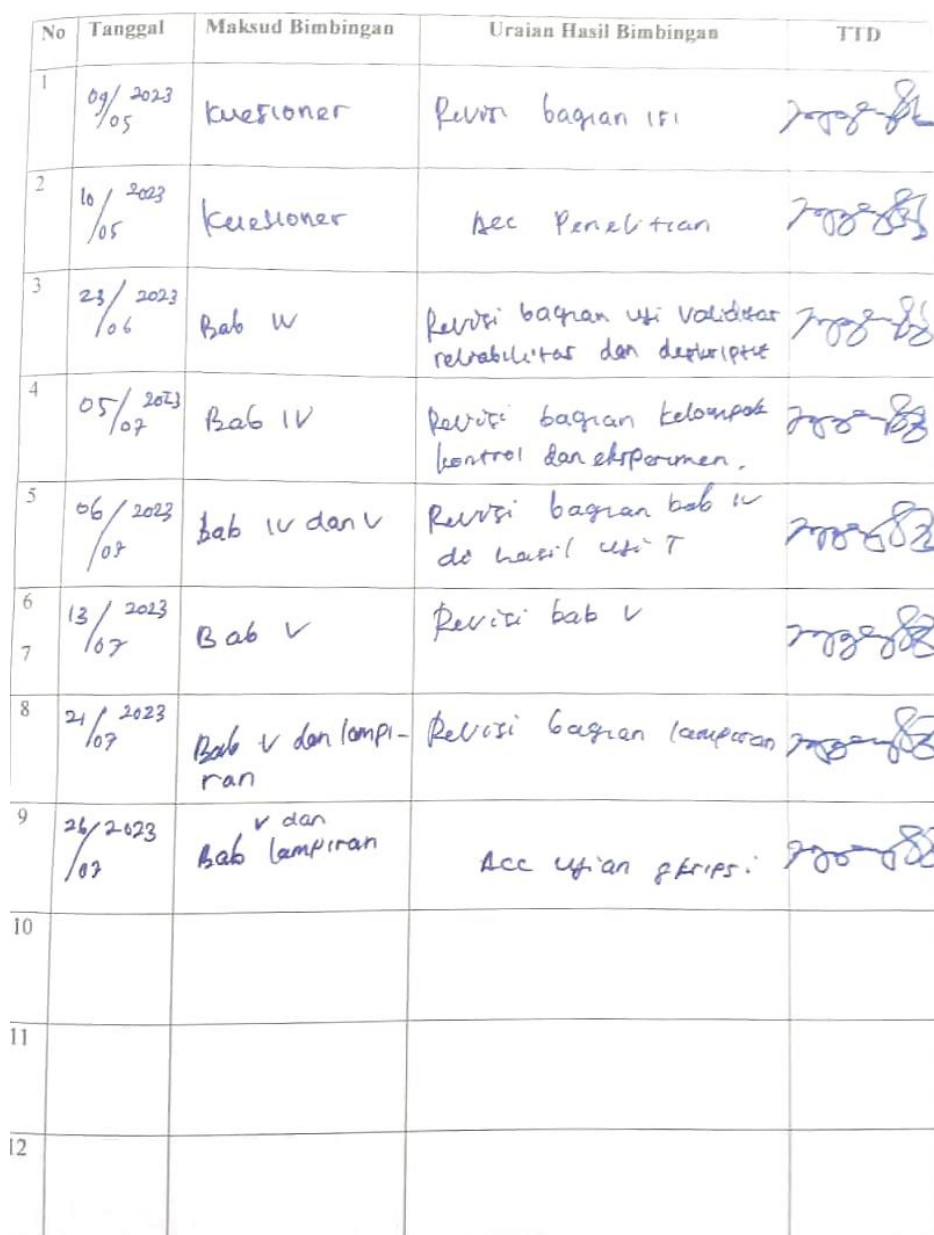 No Tanggal Maksud Bimbingan Uraian Hasil Bimbingan TTD
1 09/05 2023 Kuesioner Revisi bagian isi
2 10/05 2023 Kuesioner Acc Penelitian
3 23/06 2023 Bab IV Revisi bagian uji validitas
reliabilitas dan deskriptif
4 05/07 2023 Bab IV Revisi bagian kelompok
kontrol dan eksperimen.
5 06/07 2023 Bab IV dan V Revisi bagian bab IV
di hasil uji T
6 13/07 2023 Bab V Revisi bab V
7
8 21/07 2023 Bab V dan lampi- Revisi bagian lampiran
ran
9 26/07 2023 Bab V dan lampiran Acc ujian skripsi
10
11
12